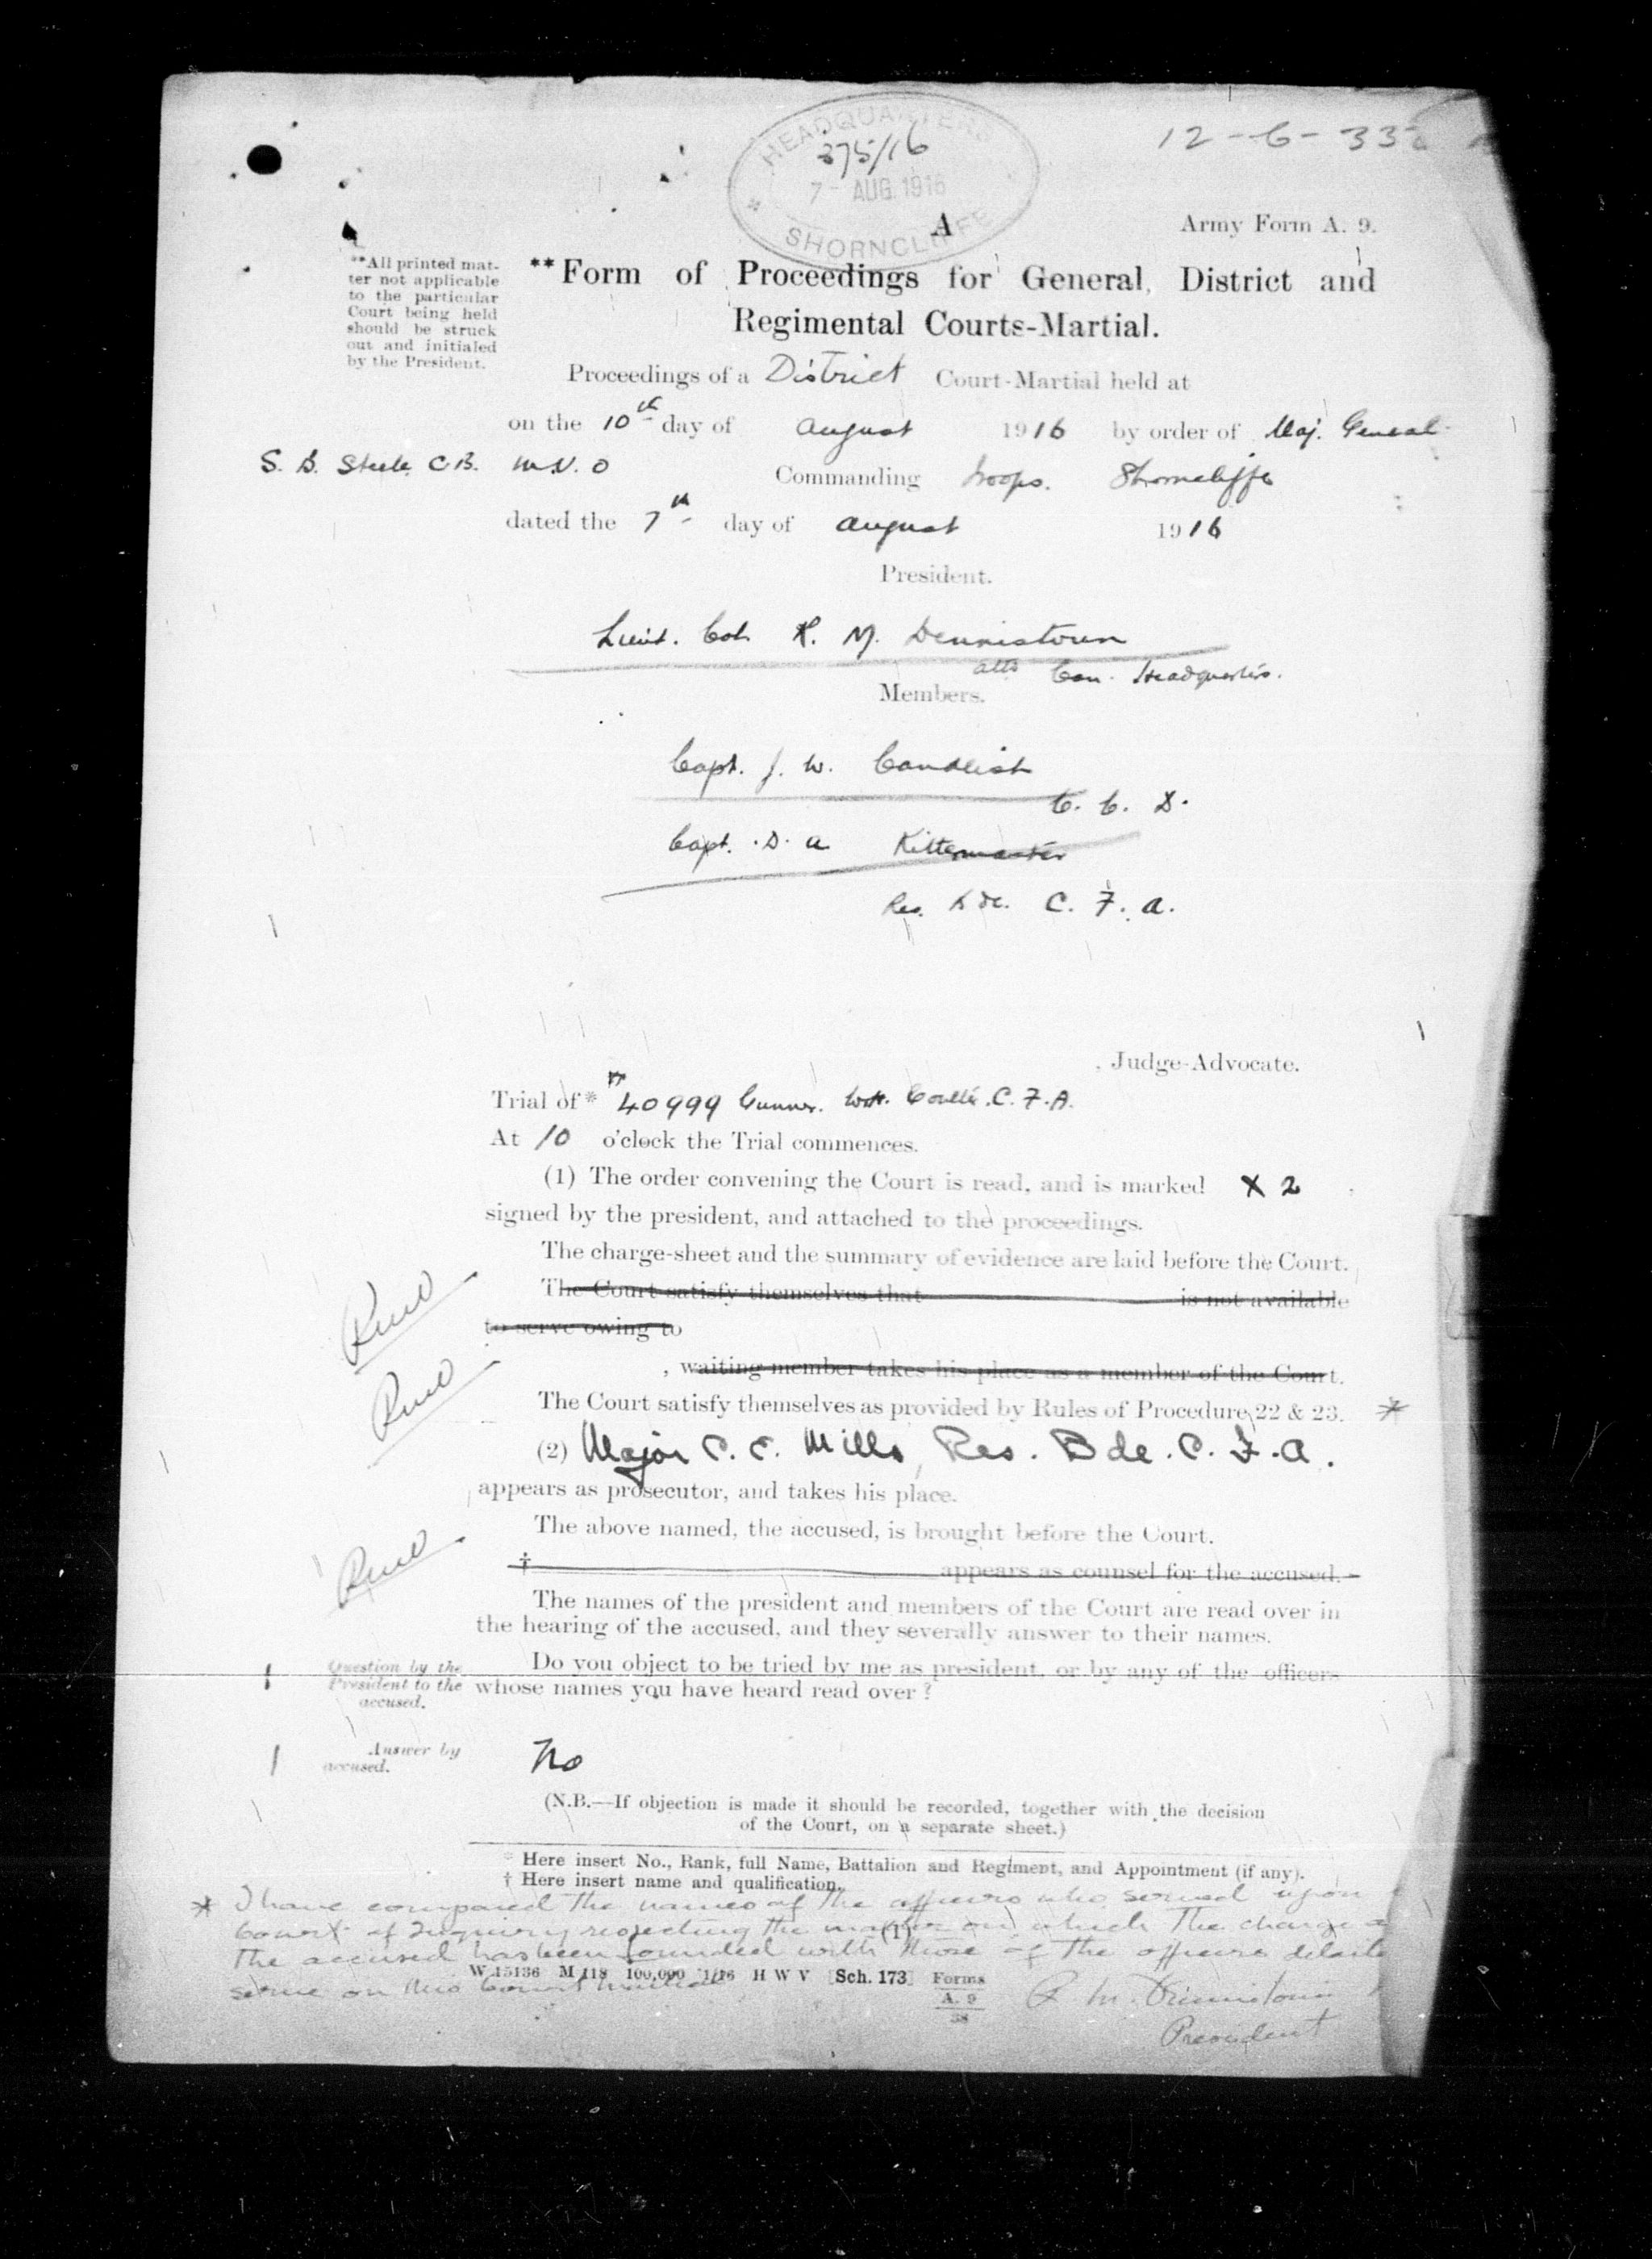 HEADQUARTERS
375/16
7 - AUG. 1916
SHORNCLIFFE
12-6-33
A
Army Form A. 9.
**All printed mat-
ter not applicable
to the particular
Court being held
should be struck
out and initialed
by the President.
**Form of Proceedings for General, District and
Regimental Courts-Martial.
Proceedings of a District Court-Martial held at
on the 10th day of August 1916 by order of Maj. General
S. B. Steele C.B. M.V.O Commanding troops. Shorncliffe
dated the 7th day of August 1916
President.
Lieut. Col. R. M. Dennistoun
attd Can. Headquarters.
Members.
Capt. J. W. Candlish
C. C. D.
Capt. D. A. Kittermaster
Res. Bde. C. F. A.
, Judge-Advocate.
Trial of* 40999 Gunner. C. F. A.
At 10 o'clock the Trial commences.
(1) The order convening the Court is read, and is marked X 2
signed by the president, and attached to the proceedings.
The charge-sheet and the summary of evidence are laid before the Court.
The Court satisfy themselves that is not available
to serve owing to
, waiting member takes his place as a member of the Court.
RMD
RMD
The Court satisfy themselves as provided by Rules of Procedure 22 & 23. *
(2) Major C. E. Mills, Res. Bde. C. F. A.
appears as prosecutor, and takes his place.
The above named, the accused, is brought before the Court.
RMD
† appears as counsel for the accused.
The names of the president and members of the Court are read over in
the hearing of the accused, and they severally answer to their names.
Question by the
President to the
accused.
Do you object to be tried by me as president, or by any of the officers
whose names you have heard read over?
Answer by
accused.
No
(N.B.—If objection is made it should be recorded, together with the decision
of the Court, on a separate sheet.)
* Here insert No., Rank, full Name, Battalion and Regiment, and Appointment (if any).
† Here insert name and qualification.
* I have compared the names of the officers who served upon
Court of Inquiry respecting the matter on which the charge
(1)
the accused has been founded with those of the officers
W 15136 M 118 100,000 1/16 H W V [Sch. 173] Forms
A. 9
38
serve on this Court Martial
R. M. Dennistoun
President